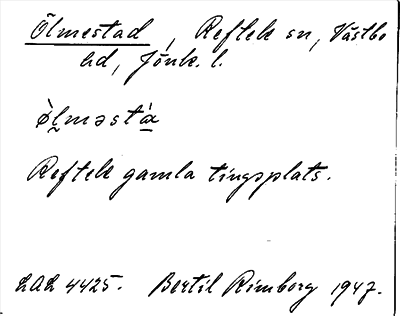 Ölmestad, Reftele sn, Västbo
hd, Jönk. l.
ò̀l̥məstá
Reftele gamla tingsplats.
LAL 4425. Bertil Rimborg 1947.